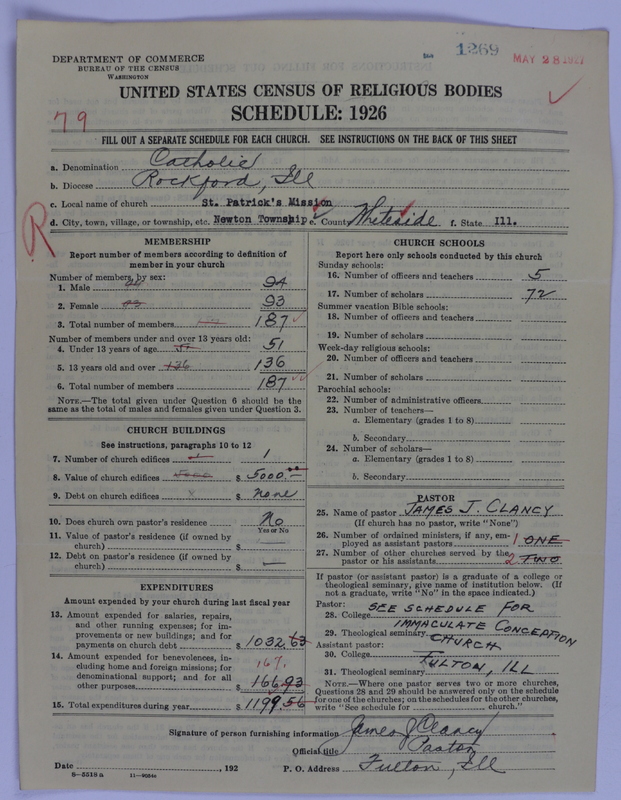 1269
MAY 28 1927
DEPARTMENT OF COMMERCE
BUREAU OF THE CENSUS
WASHINGTON
UNITED STATES CENSUS OF RELIGIOUS BODIES
SCHEDULE: 1926
79
FILL OUT A SEPARATE SCHEDULE FOR EACH CHURCH. SEE INSTRUCTIONS ON THE BACK OF THIS SHEET
a. Denomination Catholic
b. Diocese Rockford, Ill
c. Local name of church St. Patrick's Mission
d. City, town, village, or township, etc. Newton Township e. County Whiteside f. State Ill.
R
MEMBERSHIP
Report number of members according to definition of
member in your church
Number of members, by sex:
1. Male 94
2. Female 93 93
3. Total number of members 187
Number of members under and over 13 years old:
4. Under 13 years of age 51 51
5. 13 years old and over 136 136
6. Total number of members 187
NOTE.—The total given under Question 6 should be
same as the total of males and females given under Question 3.
CHURCH BUILDINGS
See instructions, paragraphs 10 to 12
7. Number of church edifices 1 1
8. Value of church edifices 5000 $ 5000.00
9. Debt on church edifices $ none
10. Does church own pastor's residence No
Yes or No
11. Value of pastor's residence (if owned by
church) $ —
12. Debt on pastor's residence (if owned by
church) $ —
EXPENDITURES
Amount expended by your church during last fiscal year
13. Amount expended for salaries, repairs,
and other running expenses; for im-
provements or new buildings; and for
payments on church debt $ 1032.63
14. Amount expended for benevolences, in-
cluding home and foreign missions; for
denominational support; and for all
other purposes 167. $ 166.93
15. Total expenditures during year $ 1199.56
CHURCH SCHOOLS
Report here only schools conducted by this church
Sunday schools:
16. Number of officers and teachers 5
17. Number of scholars 72
Summer vacation Bible schools:
18. Number of officers and teachers
19. Number of scholars
Week-day religious schools:
20. Number of officers and teachers
21. Number of scholars
Parochial schools:
22. Number of administrative officers
23. Number of teachers—
a. Elementary (grades 1 to 8)
b. Secondary
24. Number of scholars—
a. Elementary (grades 1 to 8)
b. Secondary
PASTOR
25. Name of pastor JAMES J. CLANCY
(If church has no pastor, write "None")
26. Number of ordained ministers, if any, em-
ployed as assistant pastors 1 ONE
27. Number of other churches served by the
pastor or his assistants 2 TWO
If pastor (or assistant pastor) is a graduate of a college or
theological seminary, give name of institution below. (If
not a graduate, write "No" in the space indicated.)
Pastor:
28. College SEE SCHEDULE FOR
29. Theological seminary IMMACULATE CONCEPTION
Assistant pastor: CHURCH
30. College FULTON, ILL
31. Theological seminary
NOTE.—Where one pastor serves two or more churches,
Questions 28 and 29 should be answered only on the schedule
for one of the churches; on the schedules for the other churches,
write "See schedule for church."
Signature of person furnishing information James J Clancy
Official title Pastor
Date , 192 P. O. Address Fulton, Ill
8-5518a 11-9024a